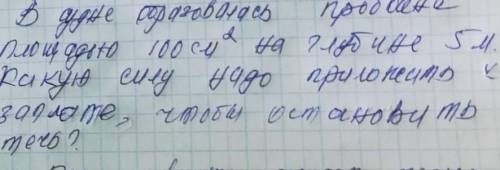 В судне образовалась пробоина
площадью 100 см² на глубине 5 м.
Какую силу надо приложить к
заплате, чтобы остановить
течь?